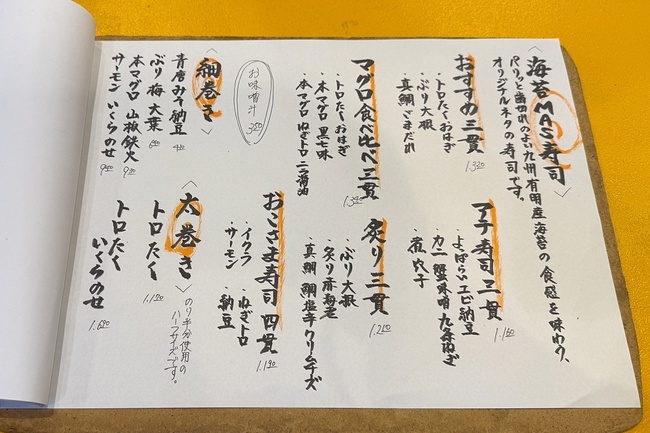 〈海苔MAS寿司〉
パリッと歯切れのよい九州有明産海苔の食感を味わう、
オリジナルネタの寿司です。
おすすめ三貫 1.320
・トロたくおはぎ
・ぶり大根
・真鯛ごまだれ
アテ寿司三貫 1.160
・よっぱらいエビ納豆
・カニ蟹味噌九条ねぎ
・煮穴子
マグロ食べ比べ三貫
・トロたくおはぎ
・本マグロ黒七味
・本マグロねぎトロニラ醤油
炙り三貫
・ぶり大根
・炙り赤海老
・真鯛鯛塩辛クリームチーズ
お味噌汁 350
おこさま寿司四貫 1.190
・イクラ ・ねぎトロ
・サーモン ・納豆
〈細巻き〉
青唐みそ納豆
ぶり梅大葉
本マグロ山椒鉄火 930
サーモンいくらのせ 950
〈太巻き〉
のり半分使用の
ハーフサイズです。
トロたく 1.190
トロたく
いくらのせ 1.690